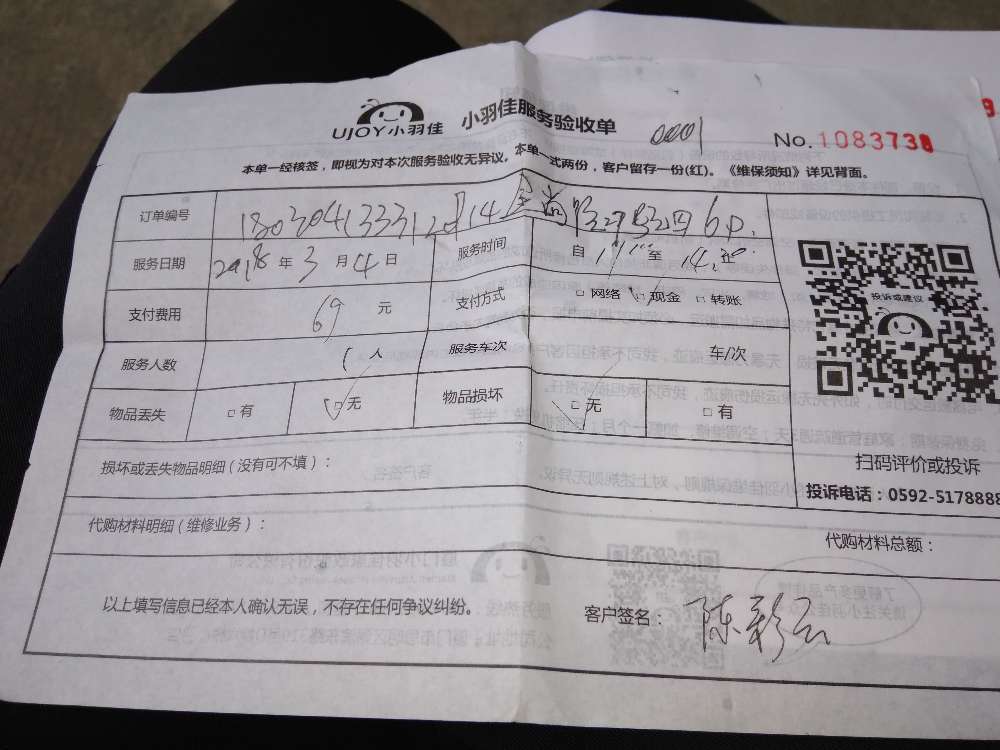 UJOY小羽佳 小羽佳服务验收单 0001 No.1083738
本单一经核签，即视为对本次服务验收无异议。本单一式两份，客户留存一份(红)。《维保须知》详见背面。
订单编号
服务日期 2018 年 3 月 4 日 服务时间 自 至
支付费用 69 元 支付方式 □ 网络 □ 现金 □ 转账
服务人数 1 人 服务车次 车/次
物品丢失 □ 有 □ 无 物品损坏 □ 无 □ 有
投诉或建议
损坏或丢失物品明细（没有可不填）：
扫码评价或投诉
投诉电话：0592-5178888
代购材料明细（维修业务）：
代购材料总额：
以上填写信息已经本人确认无误，不存在任何争议纠纷。
客户签名： 陈彩云